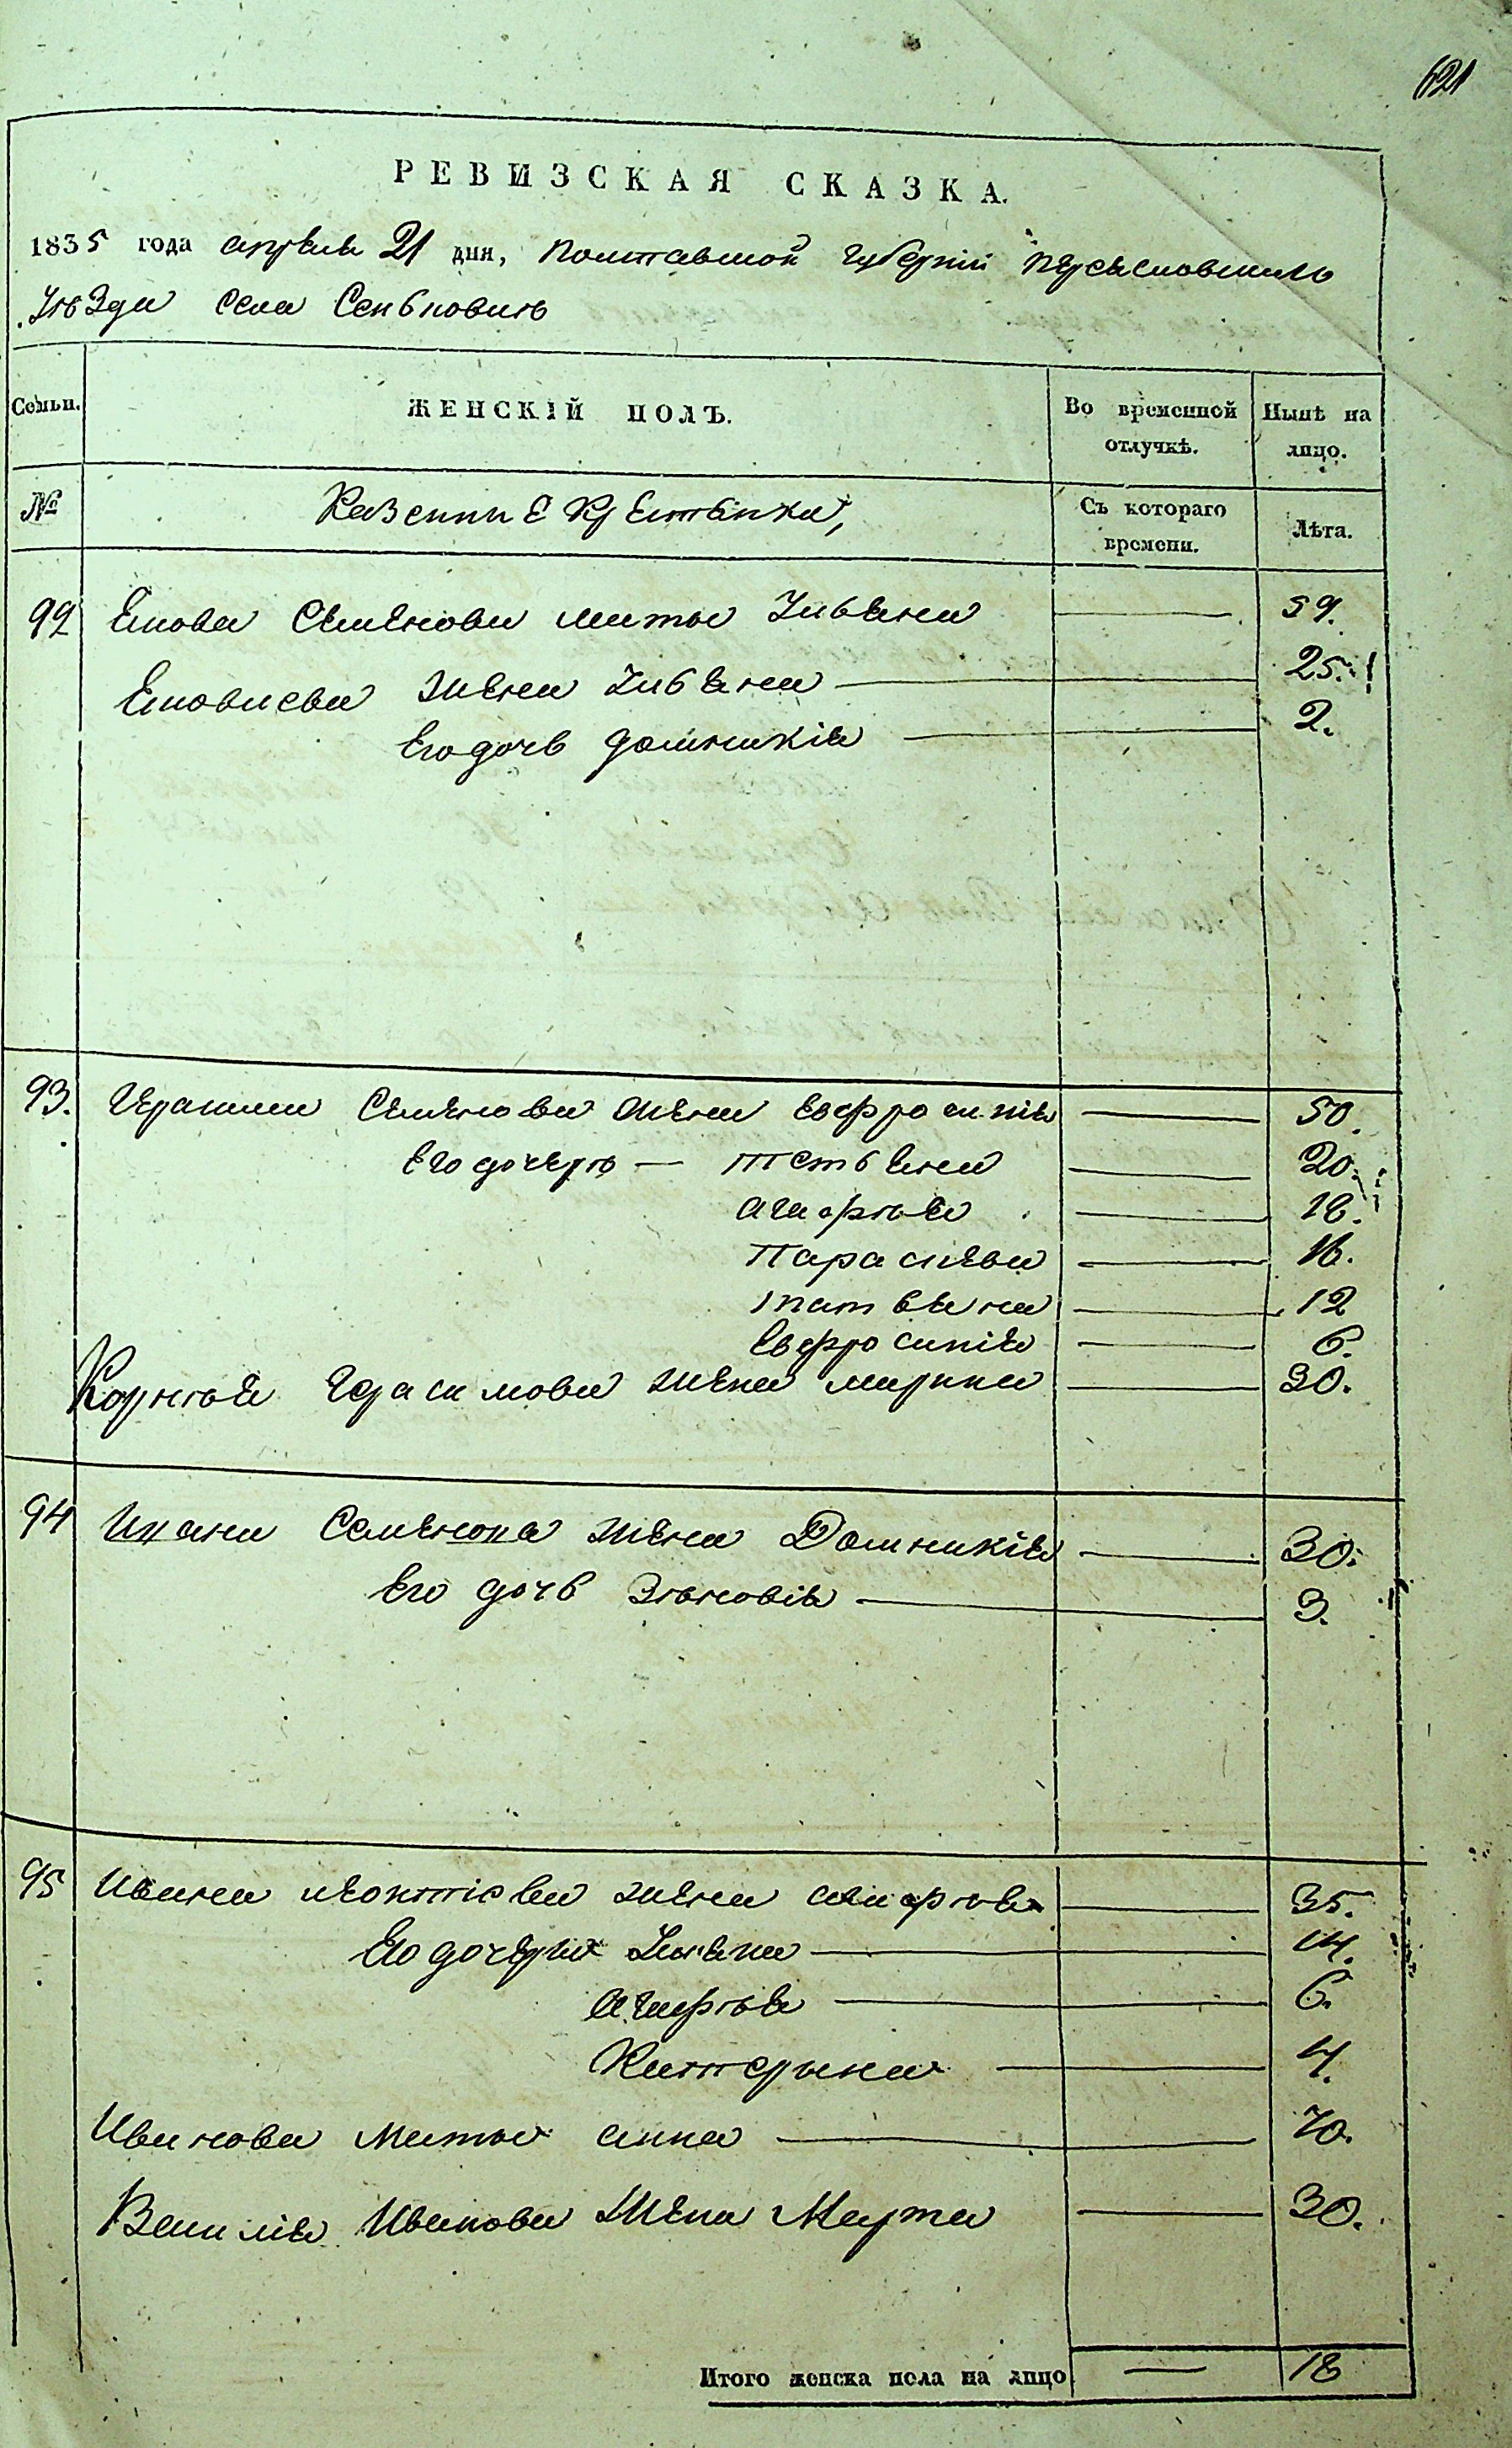 621
РЕВИЗСКАЯ СКАЗКА.
1835 года апреля 21 дня, Полтавской губерніи Переясловского
Уѣзда села Сеньковиць
Семьи. ЖЕНСКІЙ ПОЛЪ. Во временной отлучкѣ. Нынѣ на лицо.
№ Казенные Крестьянки, Съ котораго времени. Лѣта.
92 Якова Семенова мать Ульяна — 59.
жена Ульяна — 25.
его дочь Домникія — 2.
93. Герасима Семенова жена Евфросинія — 50.
его дочери — Тетьяна — 20.
Агафья — 18.
Параскева — 16.
Татьяна — 12
Евфросинія — 6.
Корнѣя Герасимова жена Марина — 30.
94 Семенова жена Домникія — 30.
Его дочь Зѣновія — 3.
95 Ивана Леонтіева жена Агафья — 35.
Его дочери Ульяна — 14.
Агафья — 6.
Катерына — 4.
Иванова мать Анна — 70.
Василія Иванова жена Марта — 30.
Итого женска пола на лицо — 18